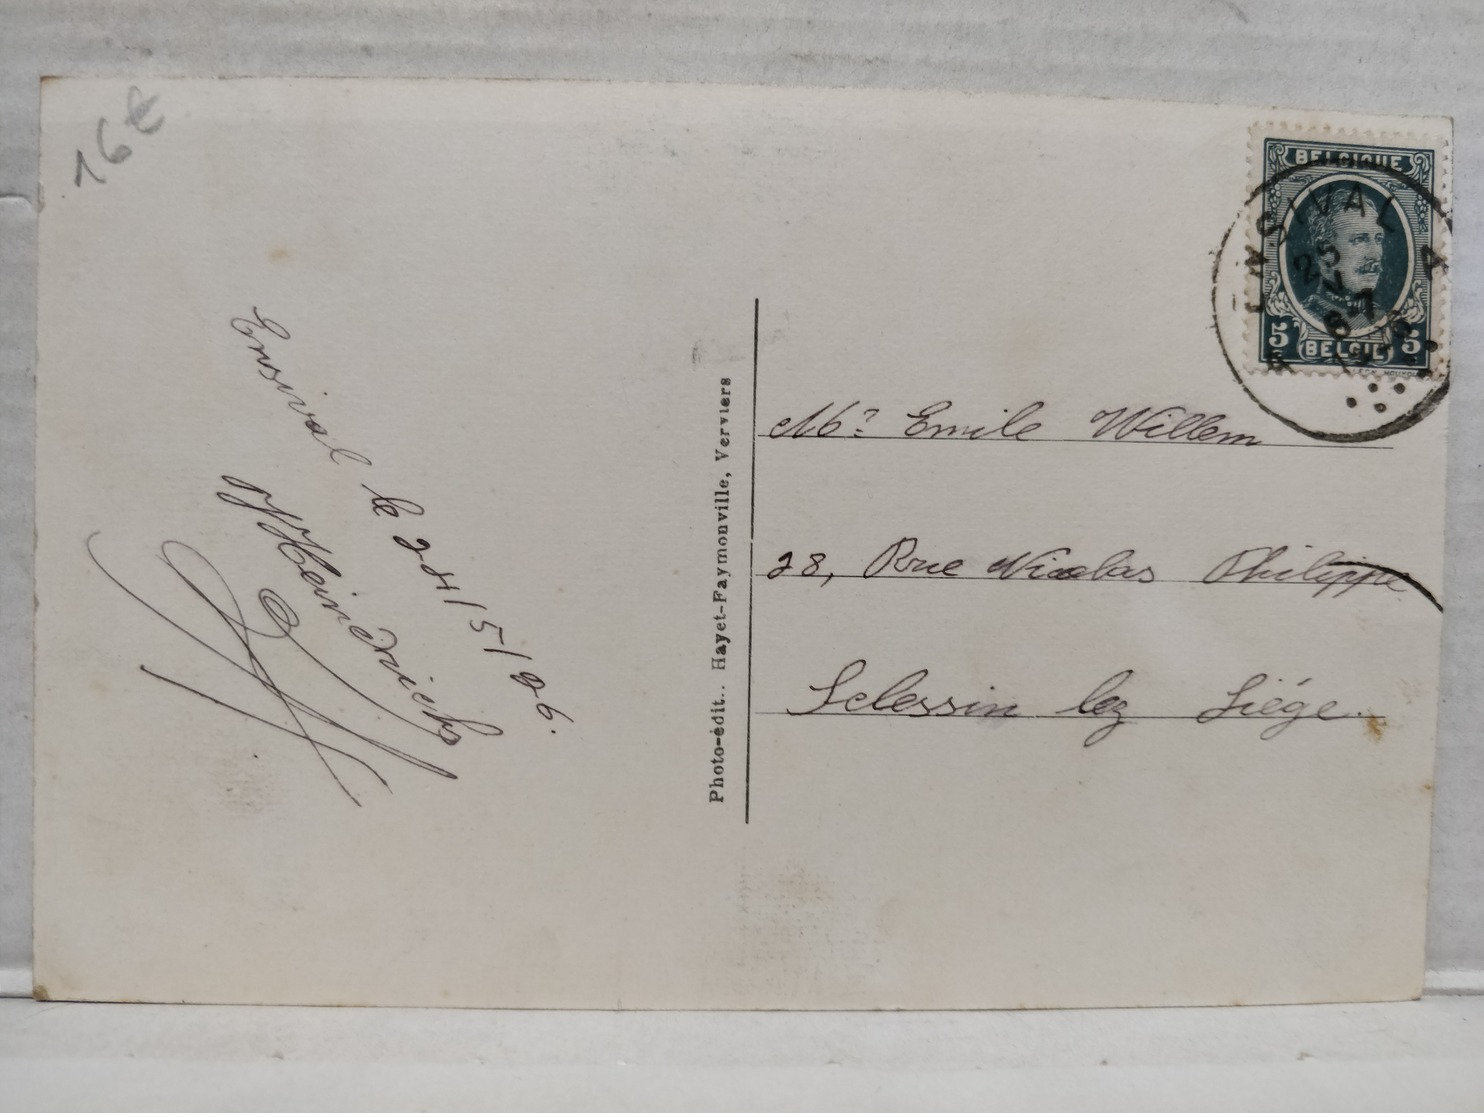 16€
Ensival le 24/5/26.
JHeindrichs
Photo-édit.. Hayet-Faymonville, Verviers
BELGIQUE
5 BELGIE 5
ENSIVAL
25
V
6-7
Mr Emile Willem
28, Rue Nicolas Philippe
Sclessin lez Liége.